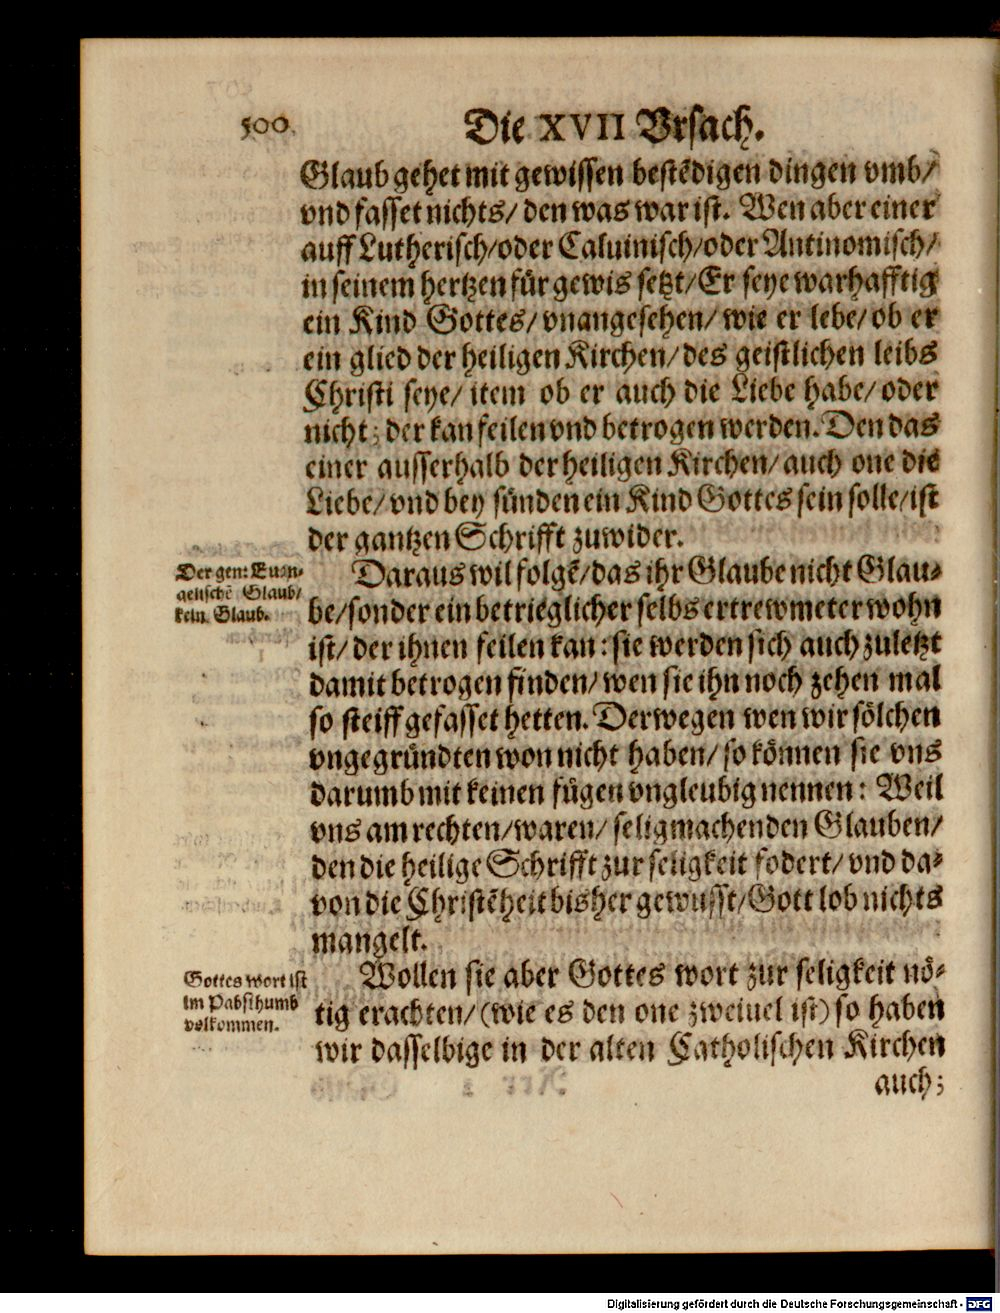 500. Die XVII Vrsach.
Glaub gehet mit gewissen bestēdigen dingen vmb/
vnd fasset nichts/ den was war ist. Wen aber einer
auff Lutherisch/oder Caluinisch/oder Antinomisch/
in seinem hertzen für gewis setzt/ Er seye warhafftig
ein Kind Gottes/ vnangesehen/ wie er lebe/ ob er
ein glied der heiligen Kirchen/ des geistlichen leibs
Christi seye/ item ob er auch die Liebe habe/ oder
nicht; der kan feilen vnd betrogen werden. Den das
einer ausserhalb der heiligen Kirchen/ auch one die
Liebe/ vnd bey sünden ein Kind Gottes sein solle/ ist
der gantzen Schrifft zuwider.
Der gen: Euan-
gelischē Glaub/
kein Glaub.
Daraus wil folgē/ das ihr Glaube nicht Glau-
be/ sonder ein betrieglicher selbs ertrewmeter wohn
ist/ der ihnen feilen kan: sie werden sich auch zuletzt
damit betrogen finden/ wen sie ihn noch zehen mal
so steiff gefasset hetten. Derwegen wen wir sölchen
vngegründten won nicht haben/ so können sie vns
darumb mit keinen fügen vngleubig nennen: Weil
vns am rechten/ waren/ seligmachenden Glauben/
den die heilige Schrifft zur seligkeit fodert/ vnd da-
von die Christēheit bisher gewusst/ Gott lob nichts
mangelt.
Gottes wort ist
im Pabsthumb
volkommen.
Wollen sie aber Gottes wort zur seligkeit nö-
tig erachten/ (wie es den one zweiuel ist) so haben
wir dasselbige in der alten Catholischen Kirchen
auch;
Digitalisierung gefördert durch die Deutsche Forschungsgemeinschaft - DFG